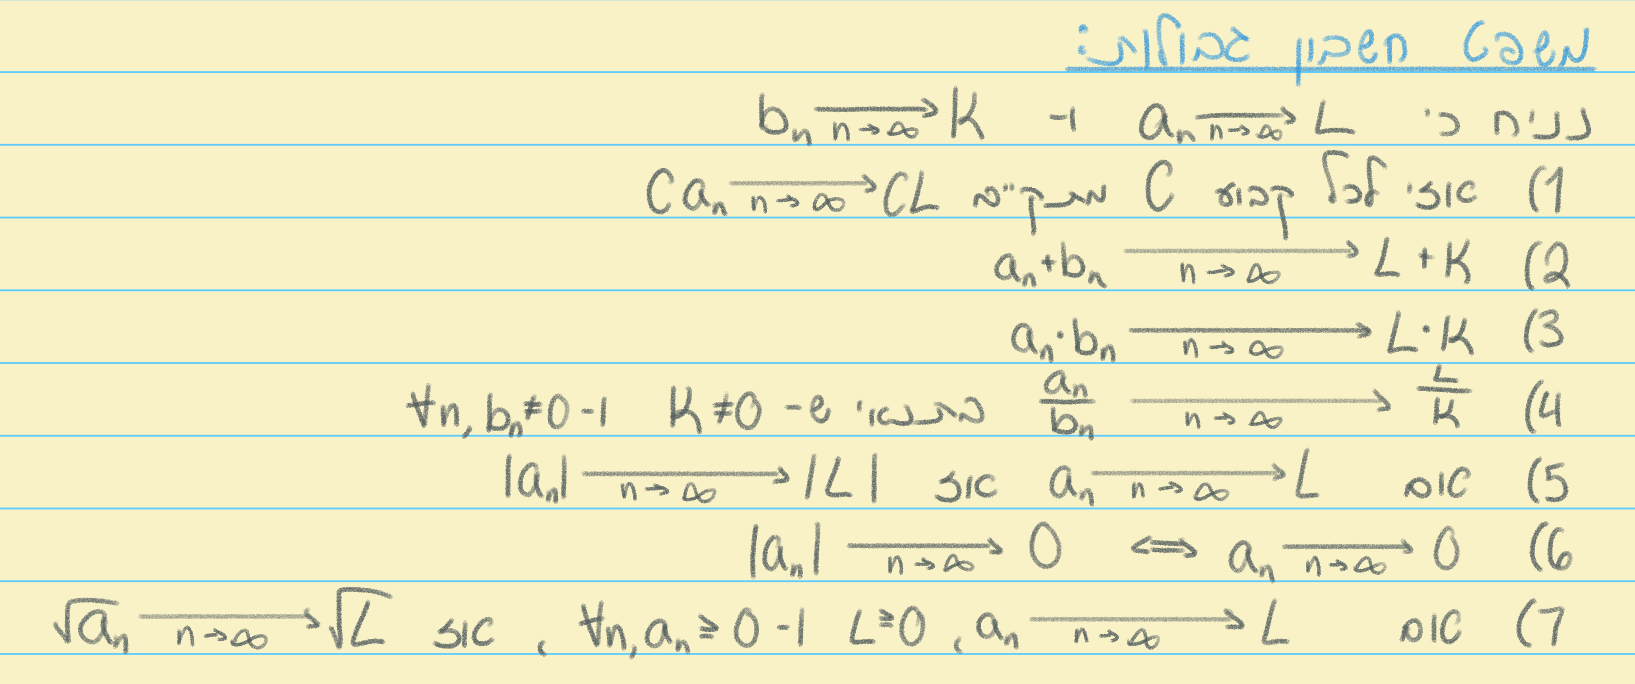 משפט חשבון גבולות:
נניח כי a_n ⟶_{n→∞} L ו- b_n ⟶_{n→∞} K
1) אזי לכל קבוע C מתקיים C a_n ⟶_{n→∞} CL
2) a_n+b_n ⟶_{n→∞} L+K
3) a_n·b_n ⟶_{n→∞} L·K
4) \frac{a_n}{b_n} ⟶_{n→∞} \frac{L}{K} בתנאי ש- K≠0 ו- ∀n, b_n≠0
5) אם a_n ⟶_{n→∞} L אז |a_n| ⟶_{n→∞} |L|
6) a_n ⟶_{n→∞} 0 ⟺ |a_n| ⟶_{n→∞} 0
7) אם a_n ⟶_{n→∞} L, L≥0 ו- ∀n, a_n≥0, אז √a_n ⟶_{n→∞} √L